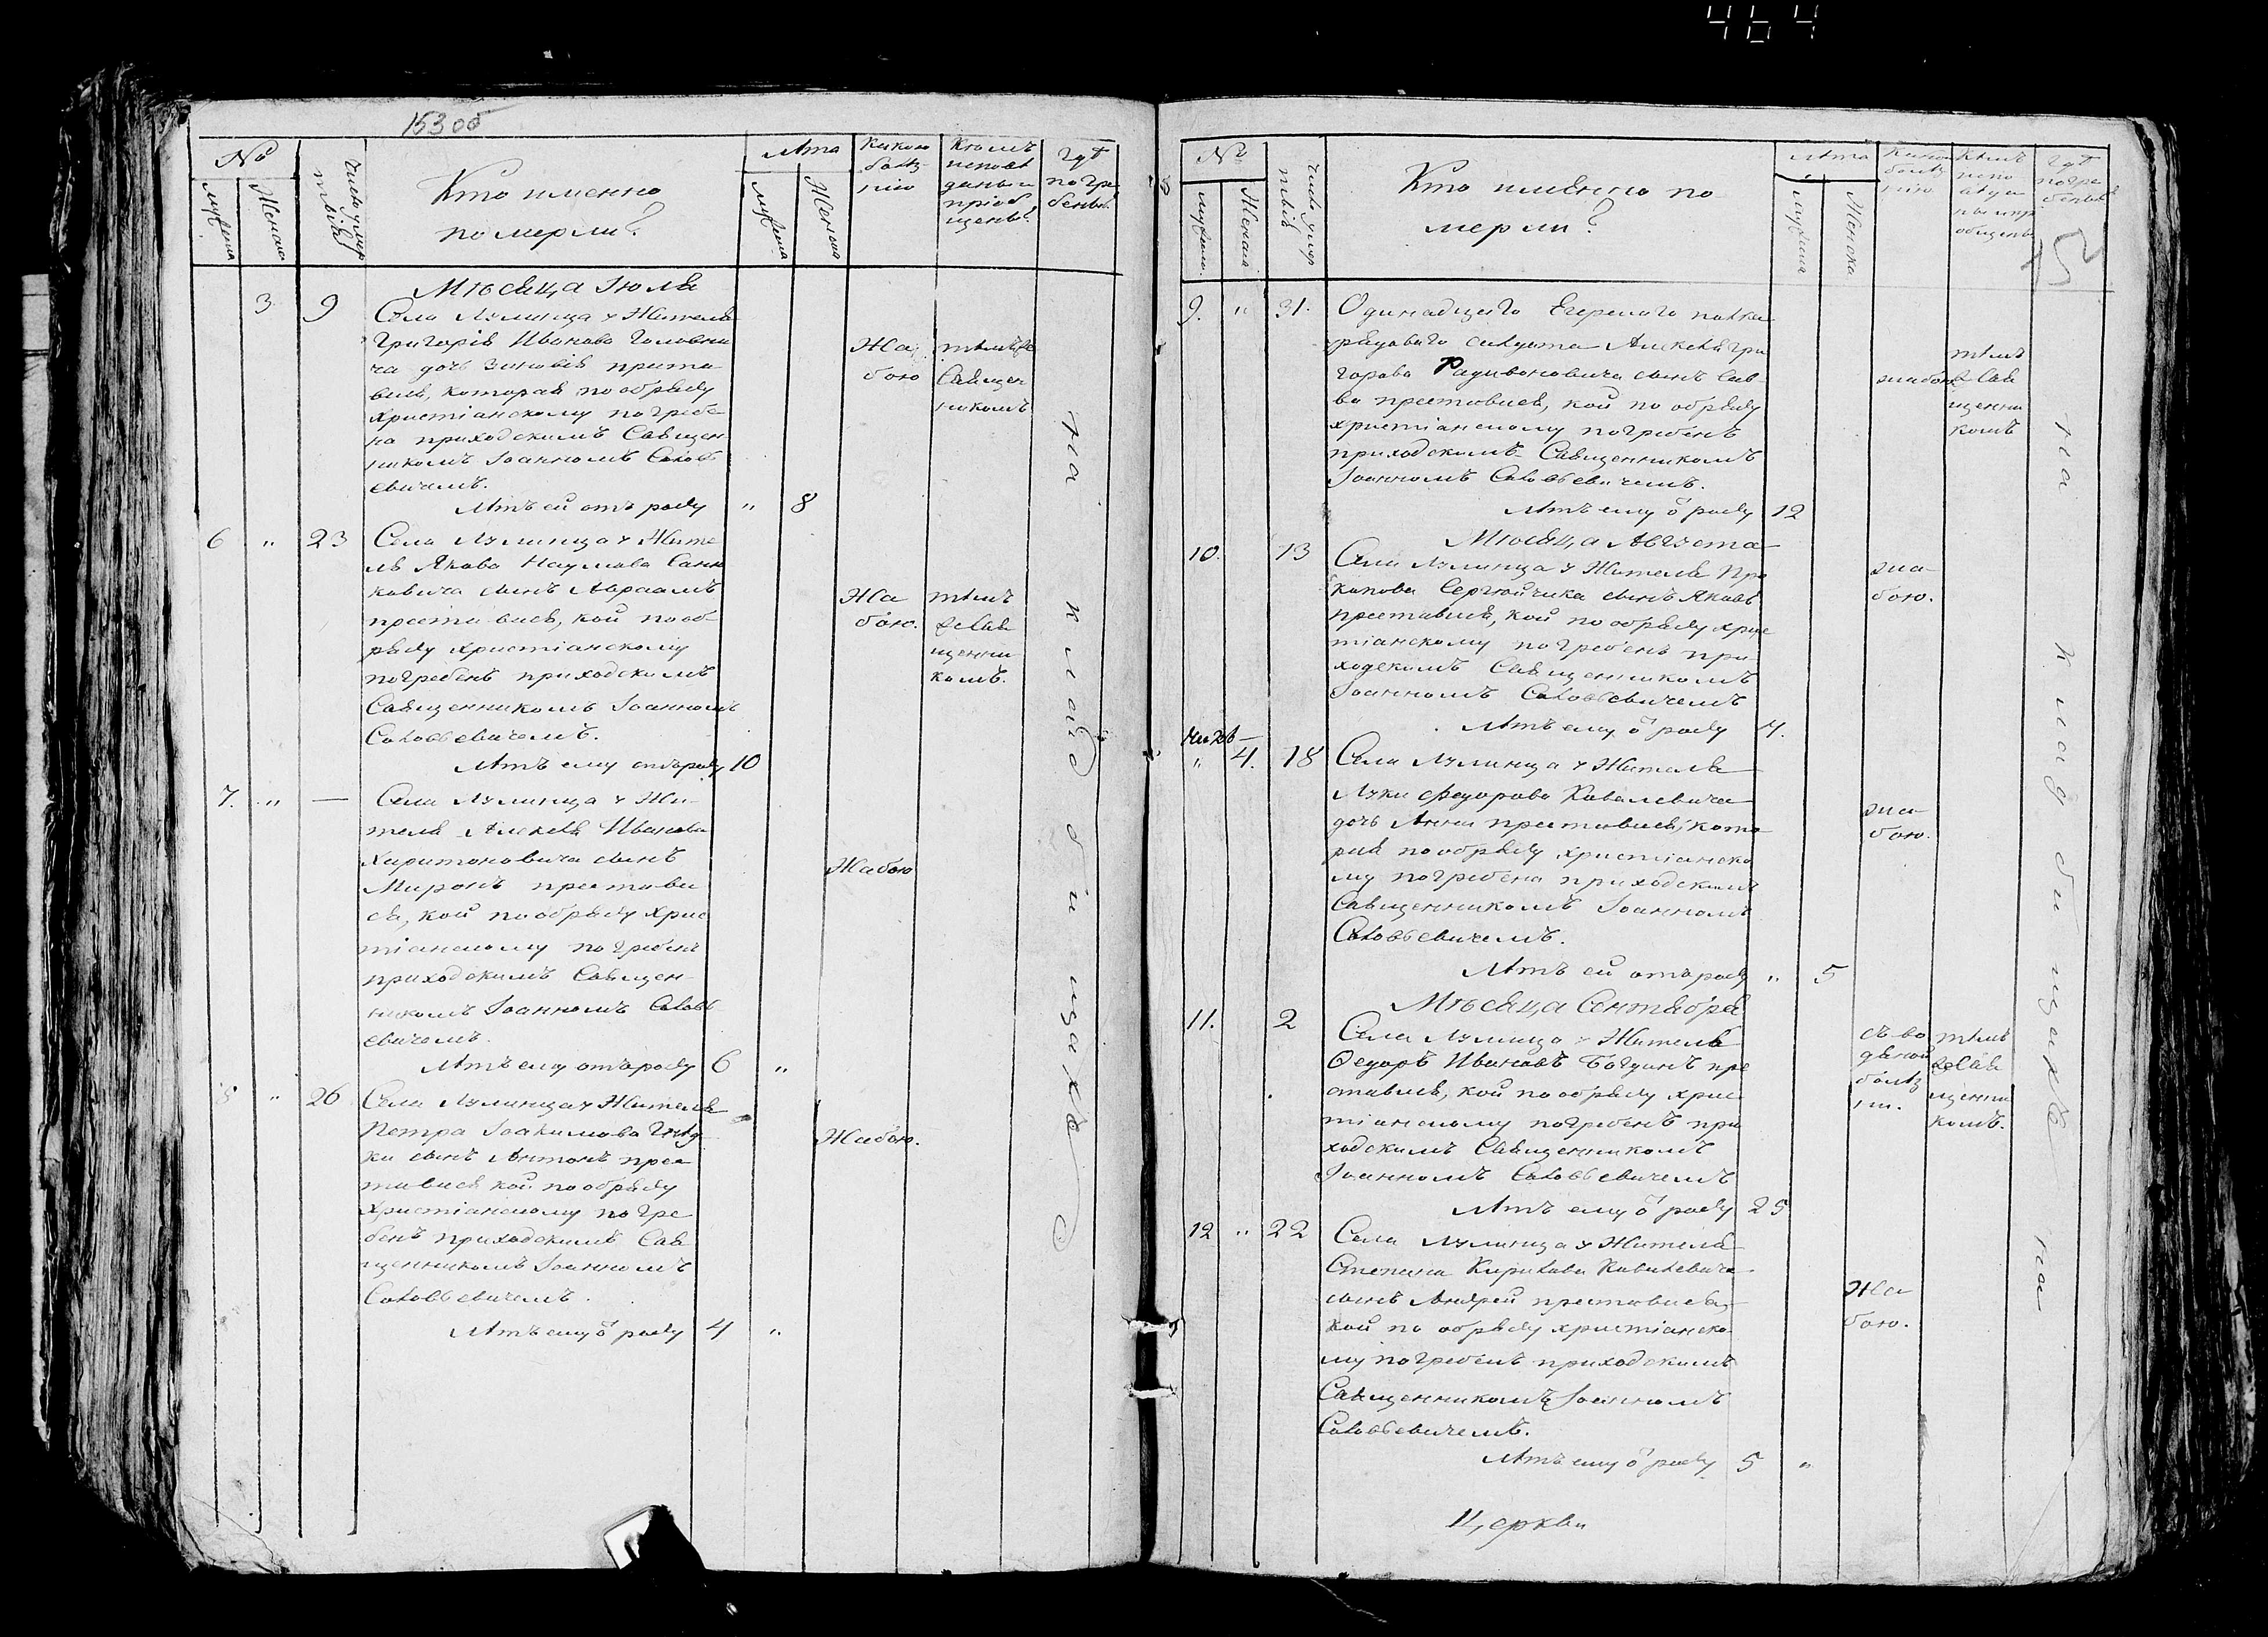 464
153 об
№
мужеска
Женска
число умер
твія
Кто именно
померли?
Лѣта
мужеска
Женска
Какою
болѣз
нію
Кѣмъ
исповѣ
даны и
пріоб
щены?
гдѣ
погре
бены?
Мѣсяца Іюля
3 9 Села Лулинца у Жителя
Григорія Иванова Головни
ча дочь Зиновія преста
вися, которая по обряду
христіанскому погребе
на приходскимъ Священ
никомъ Іоанномъ Солов
евичемъ.
Лѣтъ ей отъ роду " 8
Жа
бою
тѣмъ же
Священ
никомъ
6 " 23 Села Лулинца у Жите
ля Якова Наумова Сань
ковича сынъ Авраамъ
преставися, кой по об
ряду христіанскому
погребенъ приходскимъ
Священникомъ Іоанномъ
Соловьевичемъ.
Лѣтъ ему отъ роду 10
Жа
бою.
тѣмъ
же Свя
щенни
комъ.
7. " — Села Лулинца у Жи-
теля Алексѣя Иванова
Харитоновича сынъ
Миронъ престави
ся, кой по обряду хрис
тіанскому погребенъ
приходскимъ Священ
никомъ Іоанномъ Соловь
евичемъ.
Лѣтъ ему отъ роду 6 "
Жабою
8 " 26 Села Лулинца у Жителя
Петра Іоакимова Гнѣд
ки сынъ Антонъ прес
тавися кой по обряду
Христіанскому погре
бенъ приходскимъ Свя
щенникомъ Іоанномъ
Соловьевичемъ.
Лѣтъ ему о роду 4 "
Жабою.
на кладбищахъ
№
мужеска
Женска
число умер
твія
Кто имѣнно по
мерли?
Лѣта
мужеска
Женска
Какою
болѣз
нію
Кѣмъ
испо
вѣда
ны и пр
общены
гдѣ
погре
бены?
9. " 31. Одинадцатаго Егерского полка
рядоваго солдата Алексѣя Гри
горова Радивоновича сынъ Сав
ва преставися, кой по обряду
христіанскому погребенъ
приходскимъ Священникомъ
Іоанномъ Соловьевичемъ.
Лѣтъ ему о роду 12
жабою
тѣмъ
же Свя
щенни
комъ
Мѣсяца Августа
10. 13 Села Лулинца у Жителя Про
копова Сергейчика сынъ Яковъ
преставися, кой по обряду хрис
тіанскому погребенъ при-
ходскимъ Священникомъ
Іоанномъ Соловьевичемъ
Лѣтъ ему о роду 4.
жа-
бою.
" 4. 18 Села Лулинца у Жителя
Луки Федорова Ковалевича
дочь Анна преставися, кото
рая по обряду христіанско
му погребена приходскимъ
Священникомъ Іоанномъ
Соловьевичемъ.
Лѣтъ ей отъ роду " 5
жа
бою.
Мѣсяца Сентября
11. 2 Села Лулинца у Жителя
Ѳедоръ Ивановъ Богданъ пре
ставися, кой по обряду хрис
тіанскому погребенъ при
ходскимъ Священникомъ
Іоанномъ Соловьевичемъ
Лѣтъ ему о роду 25
съ во
дяной
болѣз
ни.
тѣмъ
же Свя
щенни
комъ.
12 " 22 Села Лулинца у Жителя
Степана Кирилова Ковалевича
сынъ Андрей преставися,
кой по обряду христіанско
му погребенъ приходскимъ
Священникомъ Іоанномъ
Соловьевичемъ.
Лѣтъ ему о роду 5 "
Жа
бою.
на кладбищахъ на
Церкви